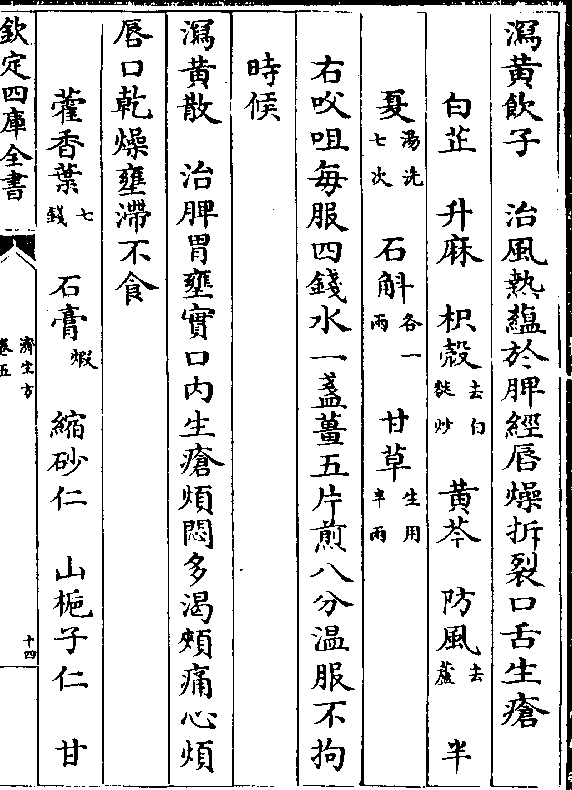 瀉黄飲子　治風熱蘊於脾經唇燥拆裂口舌生瘡
白芷　升麻　枳殻去白麩炒　黄芩　防風去蘆　半
夏湯洗七次　石斛各一兩　甘草生用半兩
右㕮咀每服四錢水一盞薑五片煎八分温服不拘
時候
瀉黄散　治脾胃壅實口内生瘡煩悶多渴頰痛心煩
唇口乾燥壅滯不食
藿香葉七錢　石膏煅　縮砂仁　山梔子仁　甘
欽定四庫全書
濟生方
卷五
十四